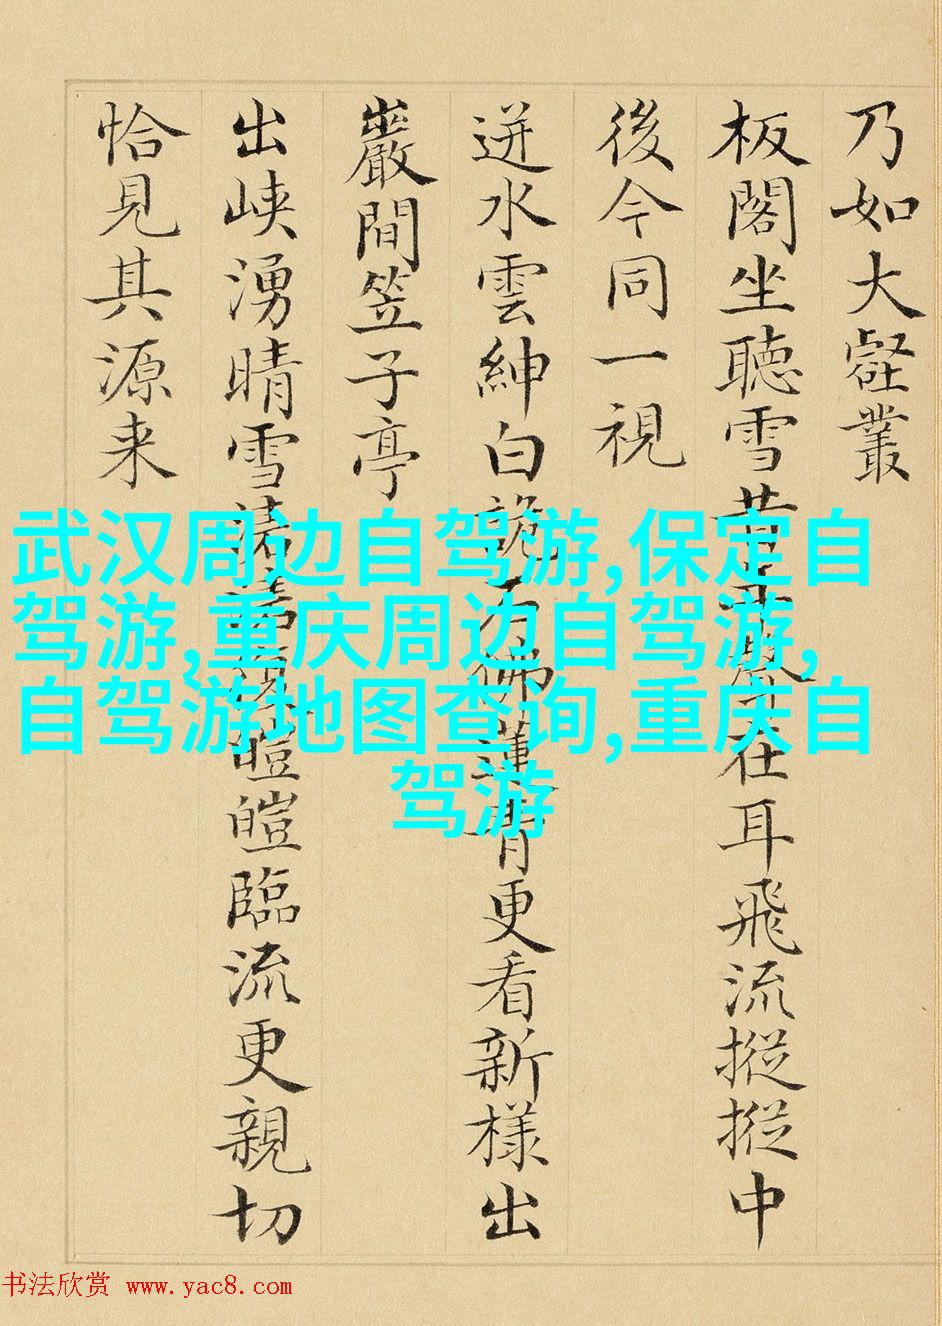 乃如大壑叢
板閣坐聽雪昔在耳飛流摐摐中
後今同一視
迸水雲紳白詭佛蓮青更看新樣出
巖間笠子亭
出峽湧晴雪皚皚臨流更親切
恰見其源来
武汉周边自驾游,保定自
驾游,重庆周边自驾游,
自驾游地图查询,重庆自
驾游
书法欣赏 www.yac8.com